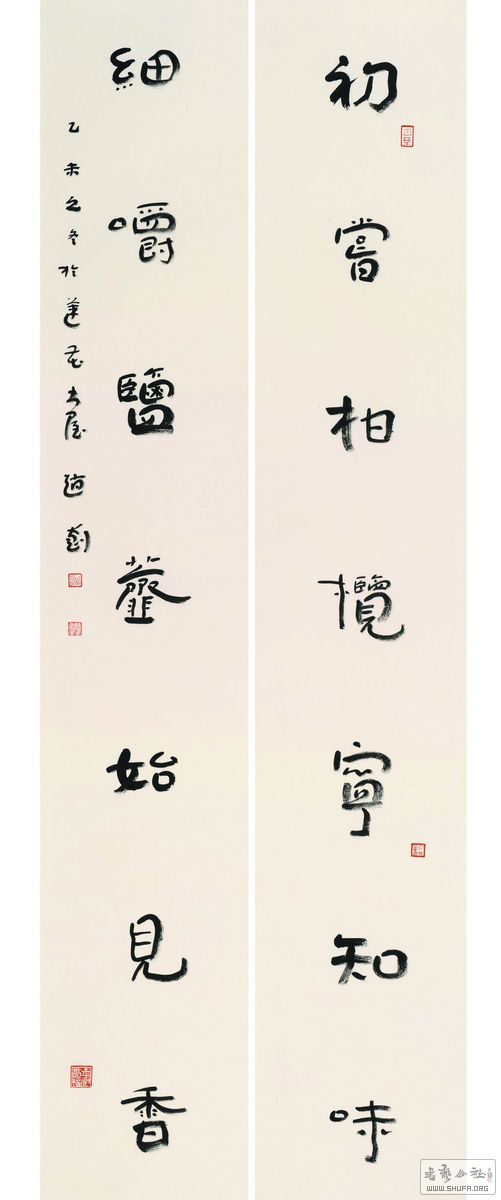 初嘗柑欖寧知味
細嚼鹽虀始見香
乙未之冬於蓮花書屋
书艺公社
WWW.SHUFA.ORG